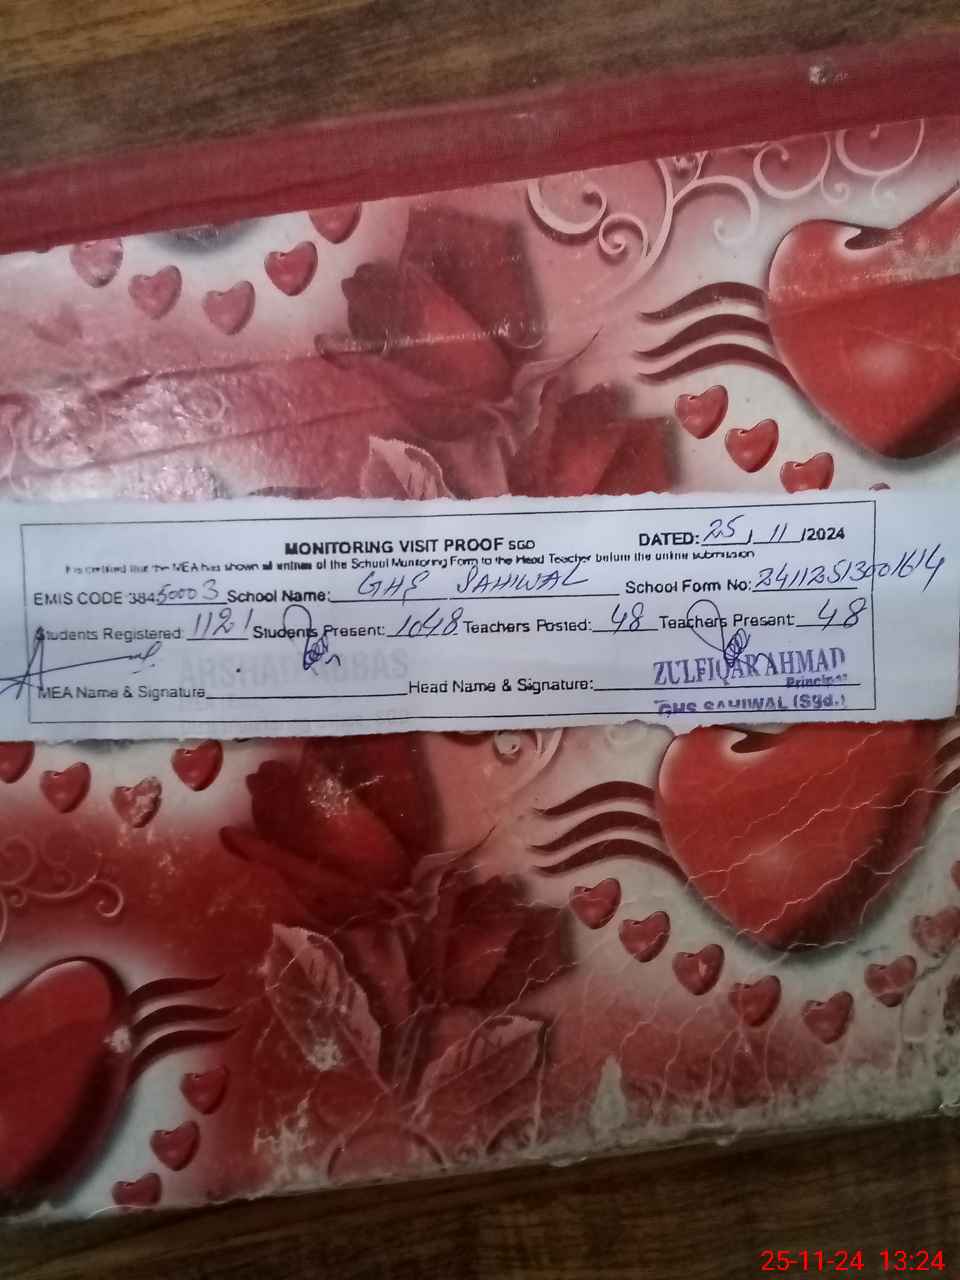 MONITORING VISIT PROOF SGD
DATED: 25 / 11 /2024
It is certified that the MEA has shown all entries of the School Monitoring Form to the Head Teacher before the online submission
EMIS CODE 38450003 School Name: GHS SAHIWAL School Form No:
Students Registered: 1121 Students Present: 1048 Teachers Posted: 48 Teachers Present: 48
ARSHAD ABBAS
ZULFIQAR AHMAD
Principal
MEA Name & Signature Head Name & Signature:
GHS SAHIWAL (Sgd.)
25-11-24 13:24